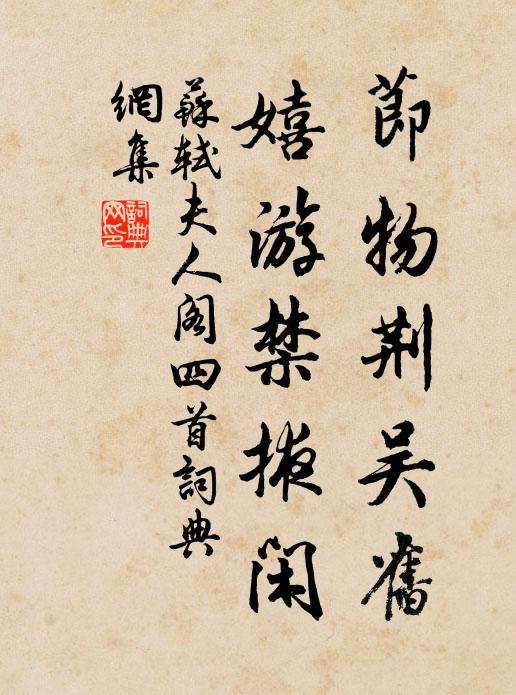 節物荆吴舊
嬉游禁掖閑
蘇軾夫人閣四首詞典
網集
詞典
网印